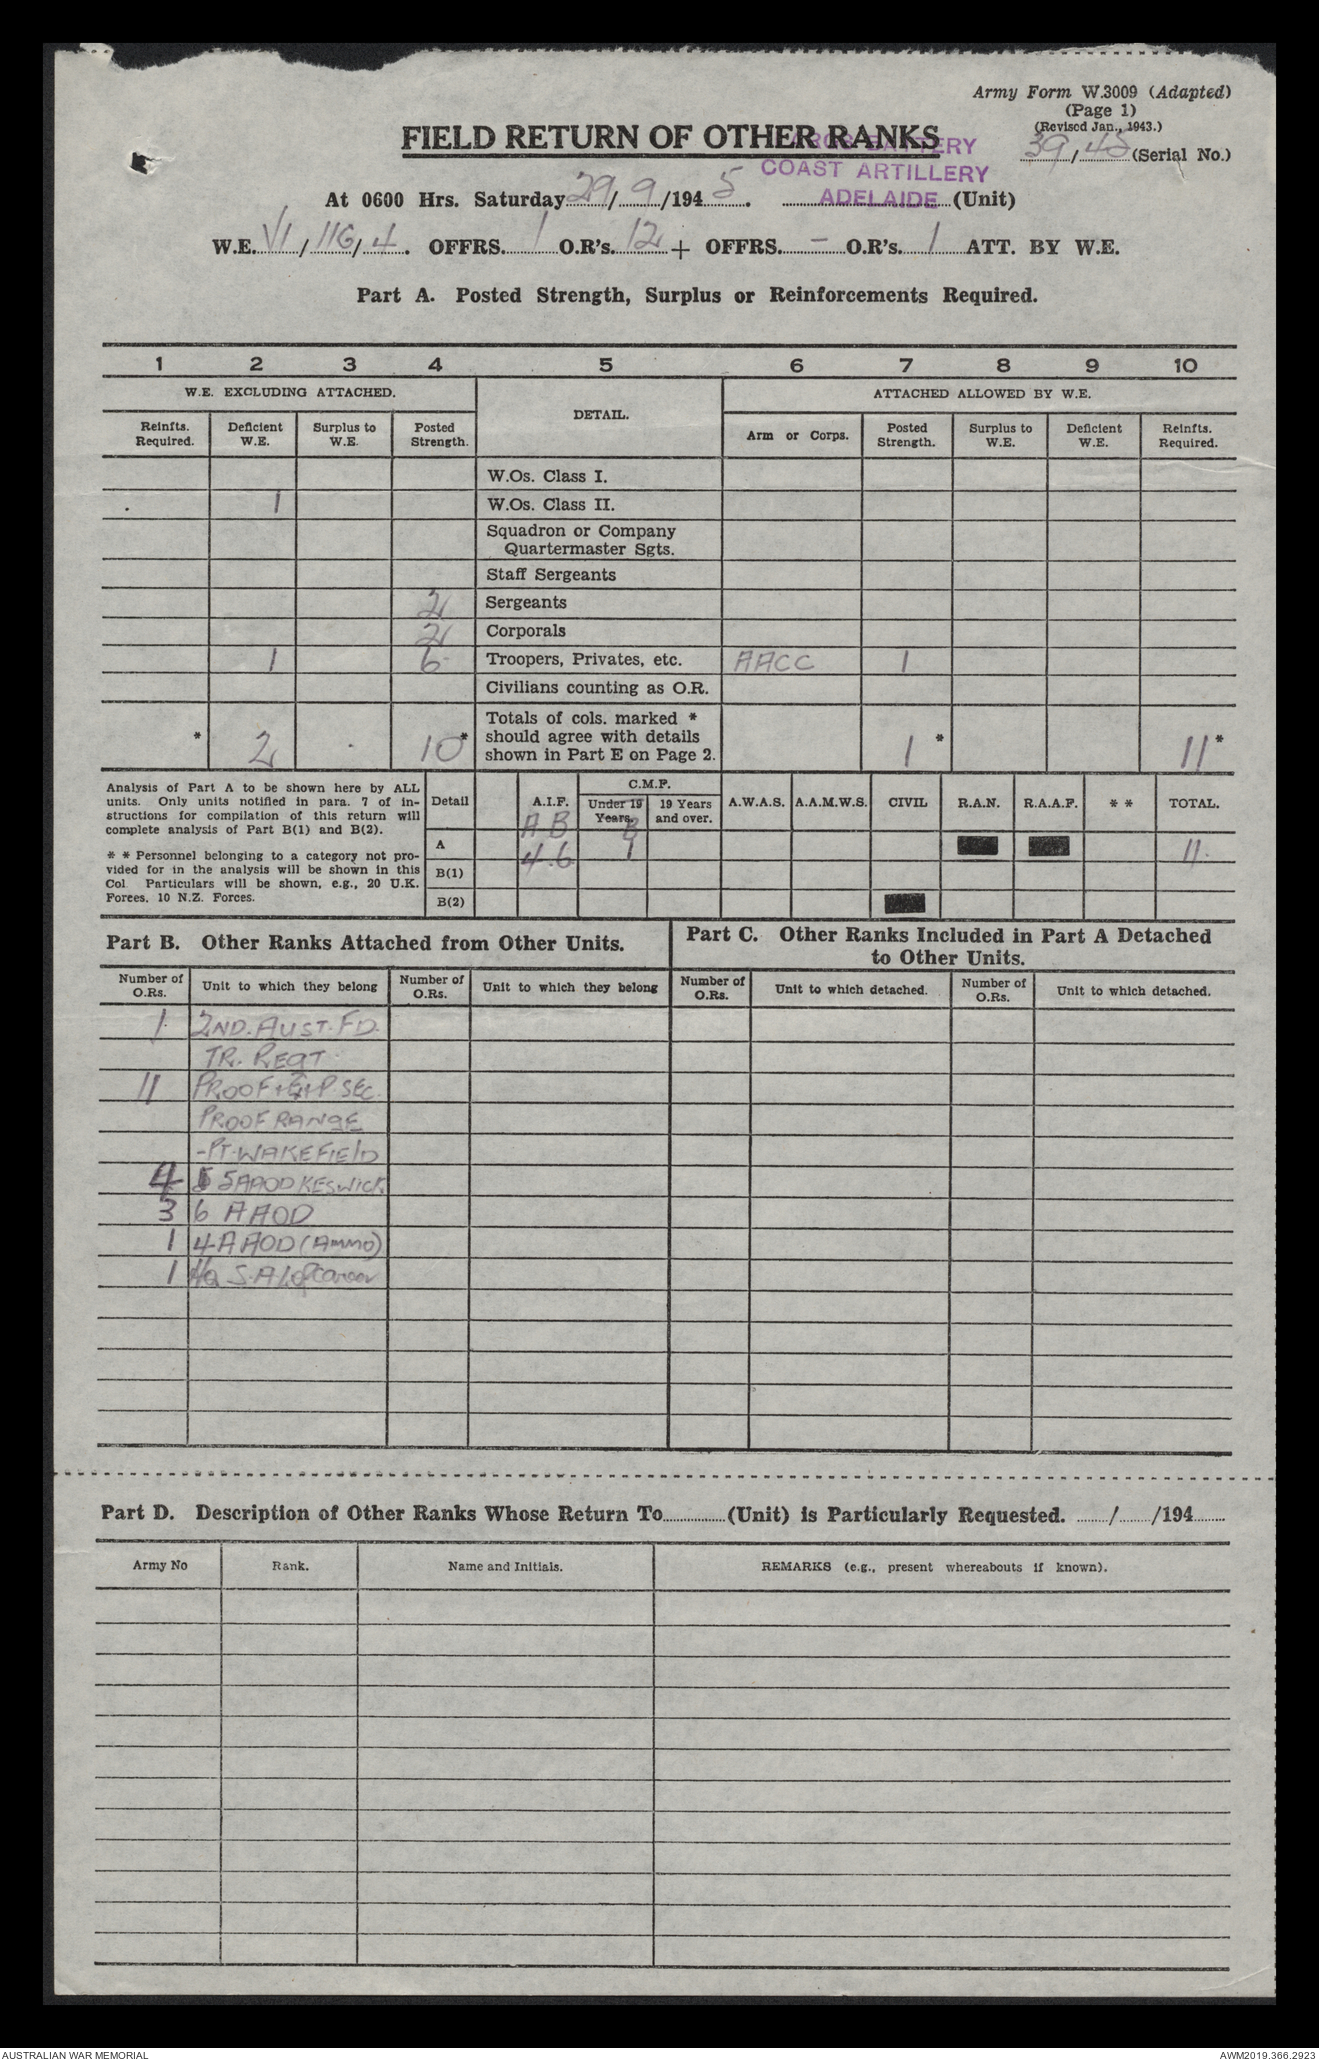 Army Form W.3009 (Adapted)
(Page 1)
(Revised Jan., 1943.)
39/45 (Serial No.)
FIELD RETURN OF OTHER RANKS
BATTERY
COAST ARTILLERY
ADELAIDE (Unit)
At 0600 Hrs. Saturday 29/9/1945.
W.E. VI/116/4. OFFRS. 1 O.R's. 12 + OFFRS. – O.R's. 1 ATT. BY W.E.
Part A. Posted Strength, Surplus or Reinforcements Required.
1 2 3 4 5 6 7 8 9 10
W.E. EXCLUDING ATTACHED. DETAIL. ATTACHED ALLOWED BY W.E.
Reinfts. Required. Deficient W.E. Surplus to W.E. Posted Strength. Arm or Corps. Posted Strength. Surplus to W.E. Deficient W.E. Reinfts. Required.
W.Os. Class I.
1 W.Os. Class II.
Squadron or Company
Quartermaster Sgts.
Staff Sergeants
2 Sergeants
2 Corporals
1 6 Troopers, Privates, etc. AACC 1
Civilians counting as O.R.
Totals of cols. marked *
should agree with details
shown in Part E on Page 2.
* 2 10* 1* 11*
Analysis of Part A to be shown here by ALL
units. Only units notified in para. 7 of in-
structions for compilation of this return will
complete analysis of Part B(1) and B(2).
* * Personnel belonging to a category not pro-
vided for in the analysis will be shown in this
Col Particulars will be shown, e.g., 20 U.K.
Forces, 10 N.Z. Forces.
C.M.F.
Detail A.I.F. Under 19 Years. 19 Years and over. A.W.A.S. A.A.M.W.S. CIVIL R.A.N. R.A.A.F. * * TOTAL.
A B B
A 4 6 1 11.
B(1)
B(2)
Part B. Other Ranks Attached from Other Units.
Part C. Other Ranks Included in Part A Detached
to Other Units.
Number of O.Rs. Unit to which they belong Number of O.Rs. Unit to which they belong Number of O.Rs. Unit to which detached. Number of O.Rs. Unit to which detached.
1 2ND. AUST. FD.
TR. REGT
11 PROOF+E+P SEC.
PROOF RANGE
-PT. WAKEFIELD
4 5AAOD KESWICK
3 6 AAOD
1 4 AAOD (AMMO)
1 HQ S.A. L of C
Part D. Description of Other Ranks Whose Return To (Unit) is Particularly Requested. / /194
Army No Rank. Name and Initials. REMARKS (e.g., present whereabouts if known).
AUSTRALIAN WAR MEMORIAL
AWM2019.366.2923